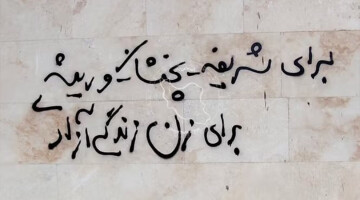 برای شریفه_بخشان_وریشه
برای زن زندگی آزادی